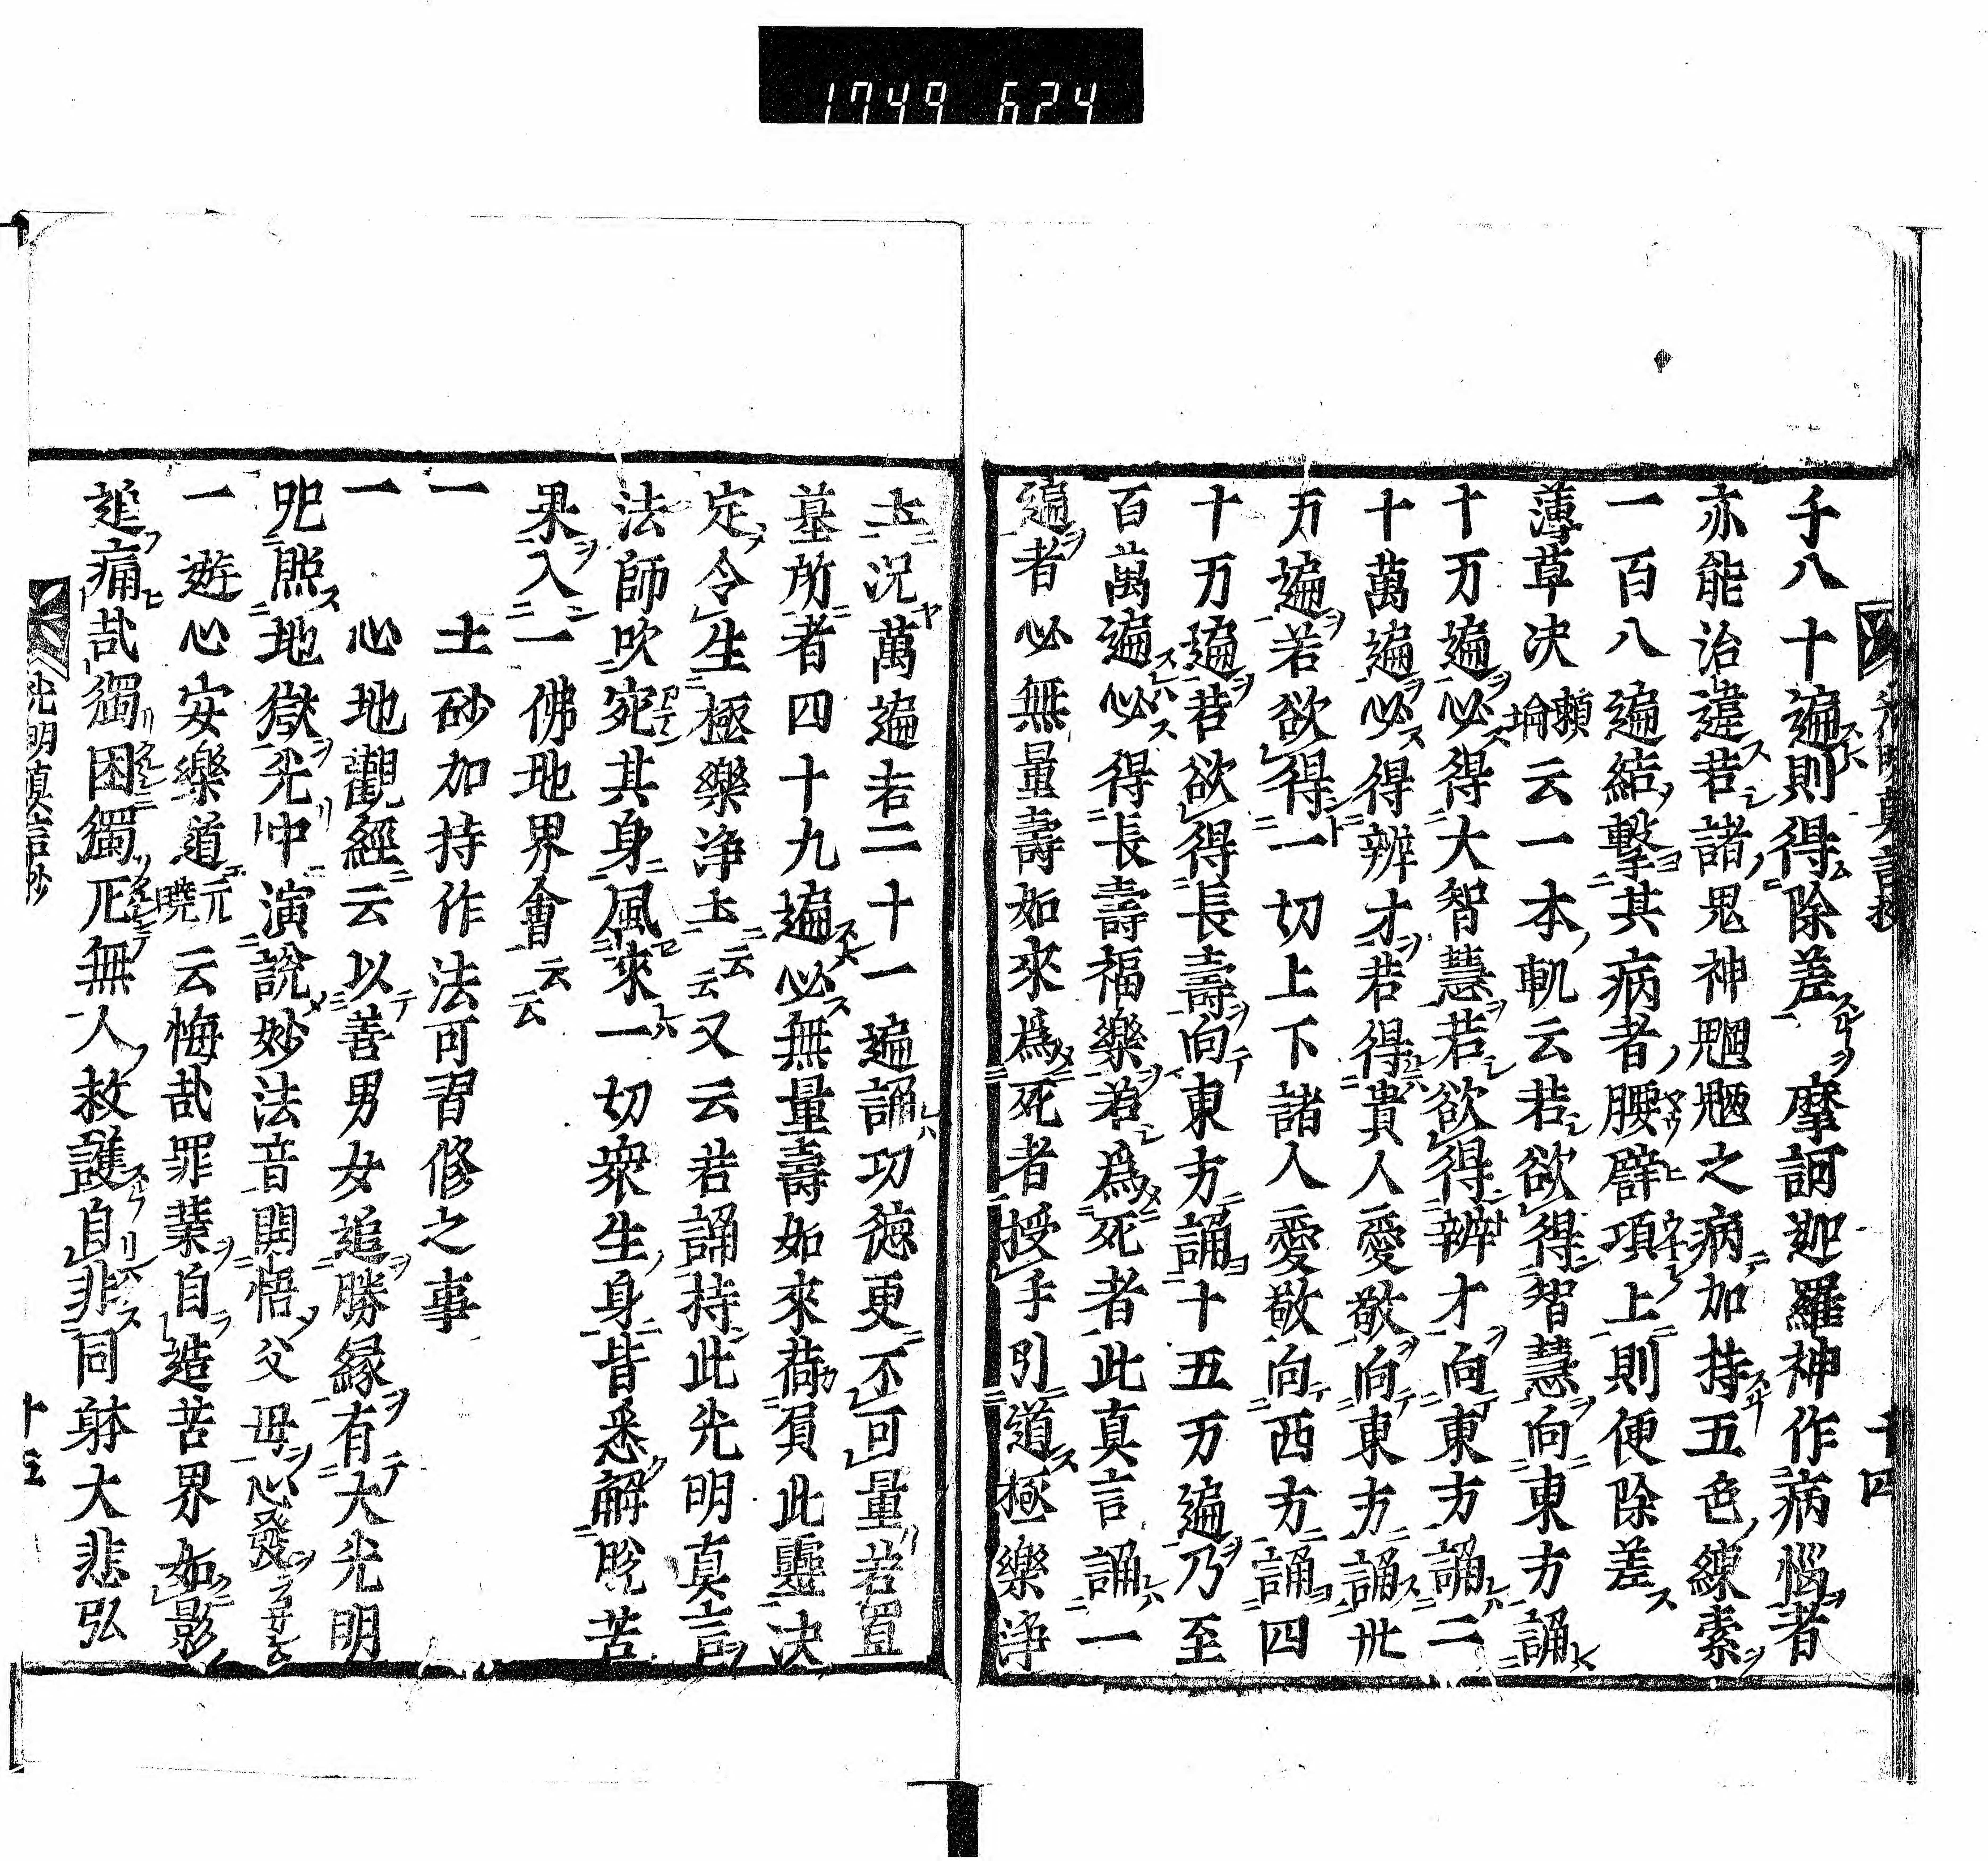 1749 624
光明真言抄
十四
千八十遍則得除差摩訶迦羅神作病惱者
亦能治違若諸鬼神魍魎之病加持五色線索
一百八遍結撃其病者腰臂項上則便除差
薄草决頼瑜云一本軌云若欲得智慧向東方誦
十万遍必得大智慧若欲得辨才向東方誦二
十萬遍必得辨才若得貴人愛敬向東方誦卅
万遍若欲得一切上下諸人愛敬向西方誦四
十万遍若欲得長壽向東方誦十五万遍乃至
百萬遍必得長壽福樂若爲死者此真言誦一
遍者必無量壽如來爲死者授手引道極樂浄
土況萬遍若二十一遍誦功德更不可量若置
墓所者四十九遍必無量壽如來荷負此靈决
定令生極樂浄土云云又云若誦持此光明真言
法師吹宛其身風來一切衆生身皆悉解脱苦
果入一佛地界會云云
一 土砂加持作法可習修之事
一 心地觀經云以善男女追勝縁有大光明
咒照地獄光中演説妙法音開悟父母心發
一 遊心安樂道元曉云悔哉罪業自造苦界如影
追痛哉獨困獨厄無人救護自非同躰大悲弘
光明真言抄
十四